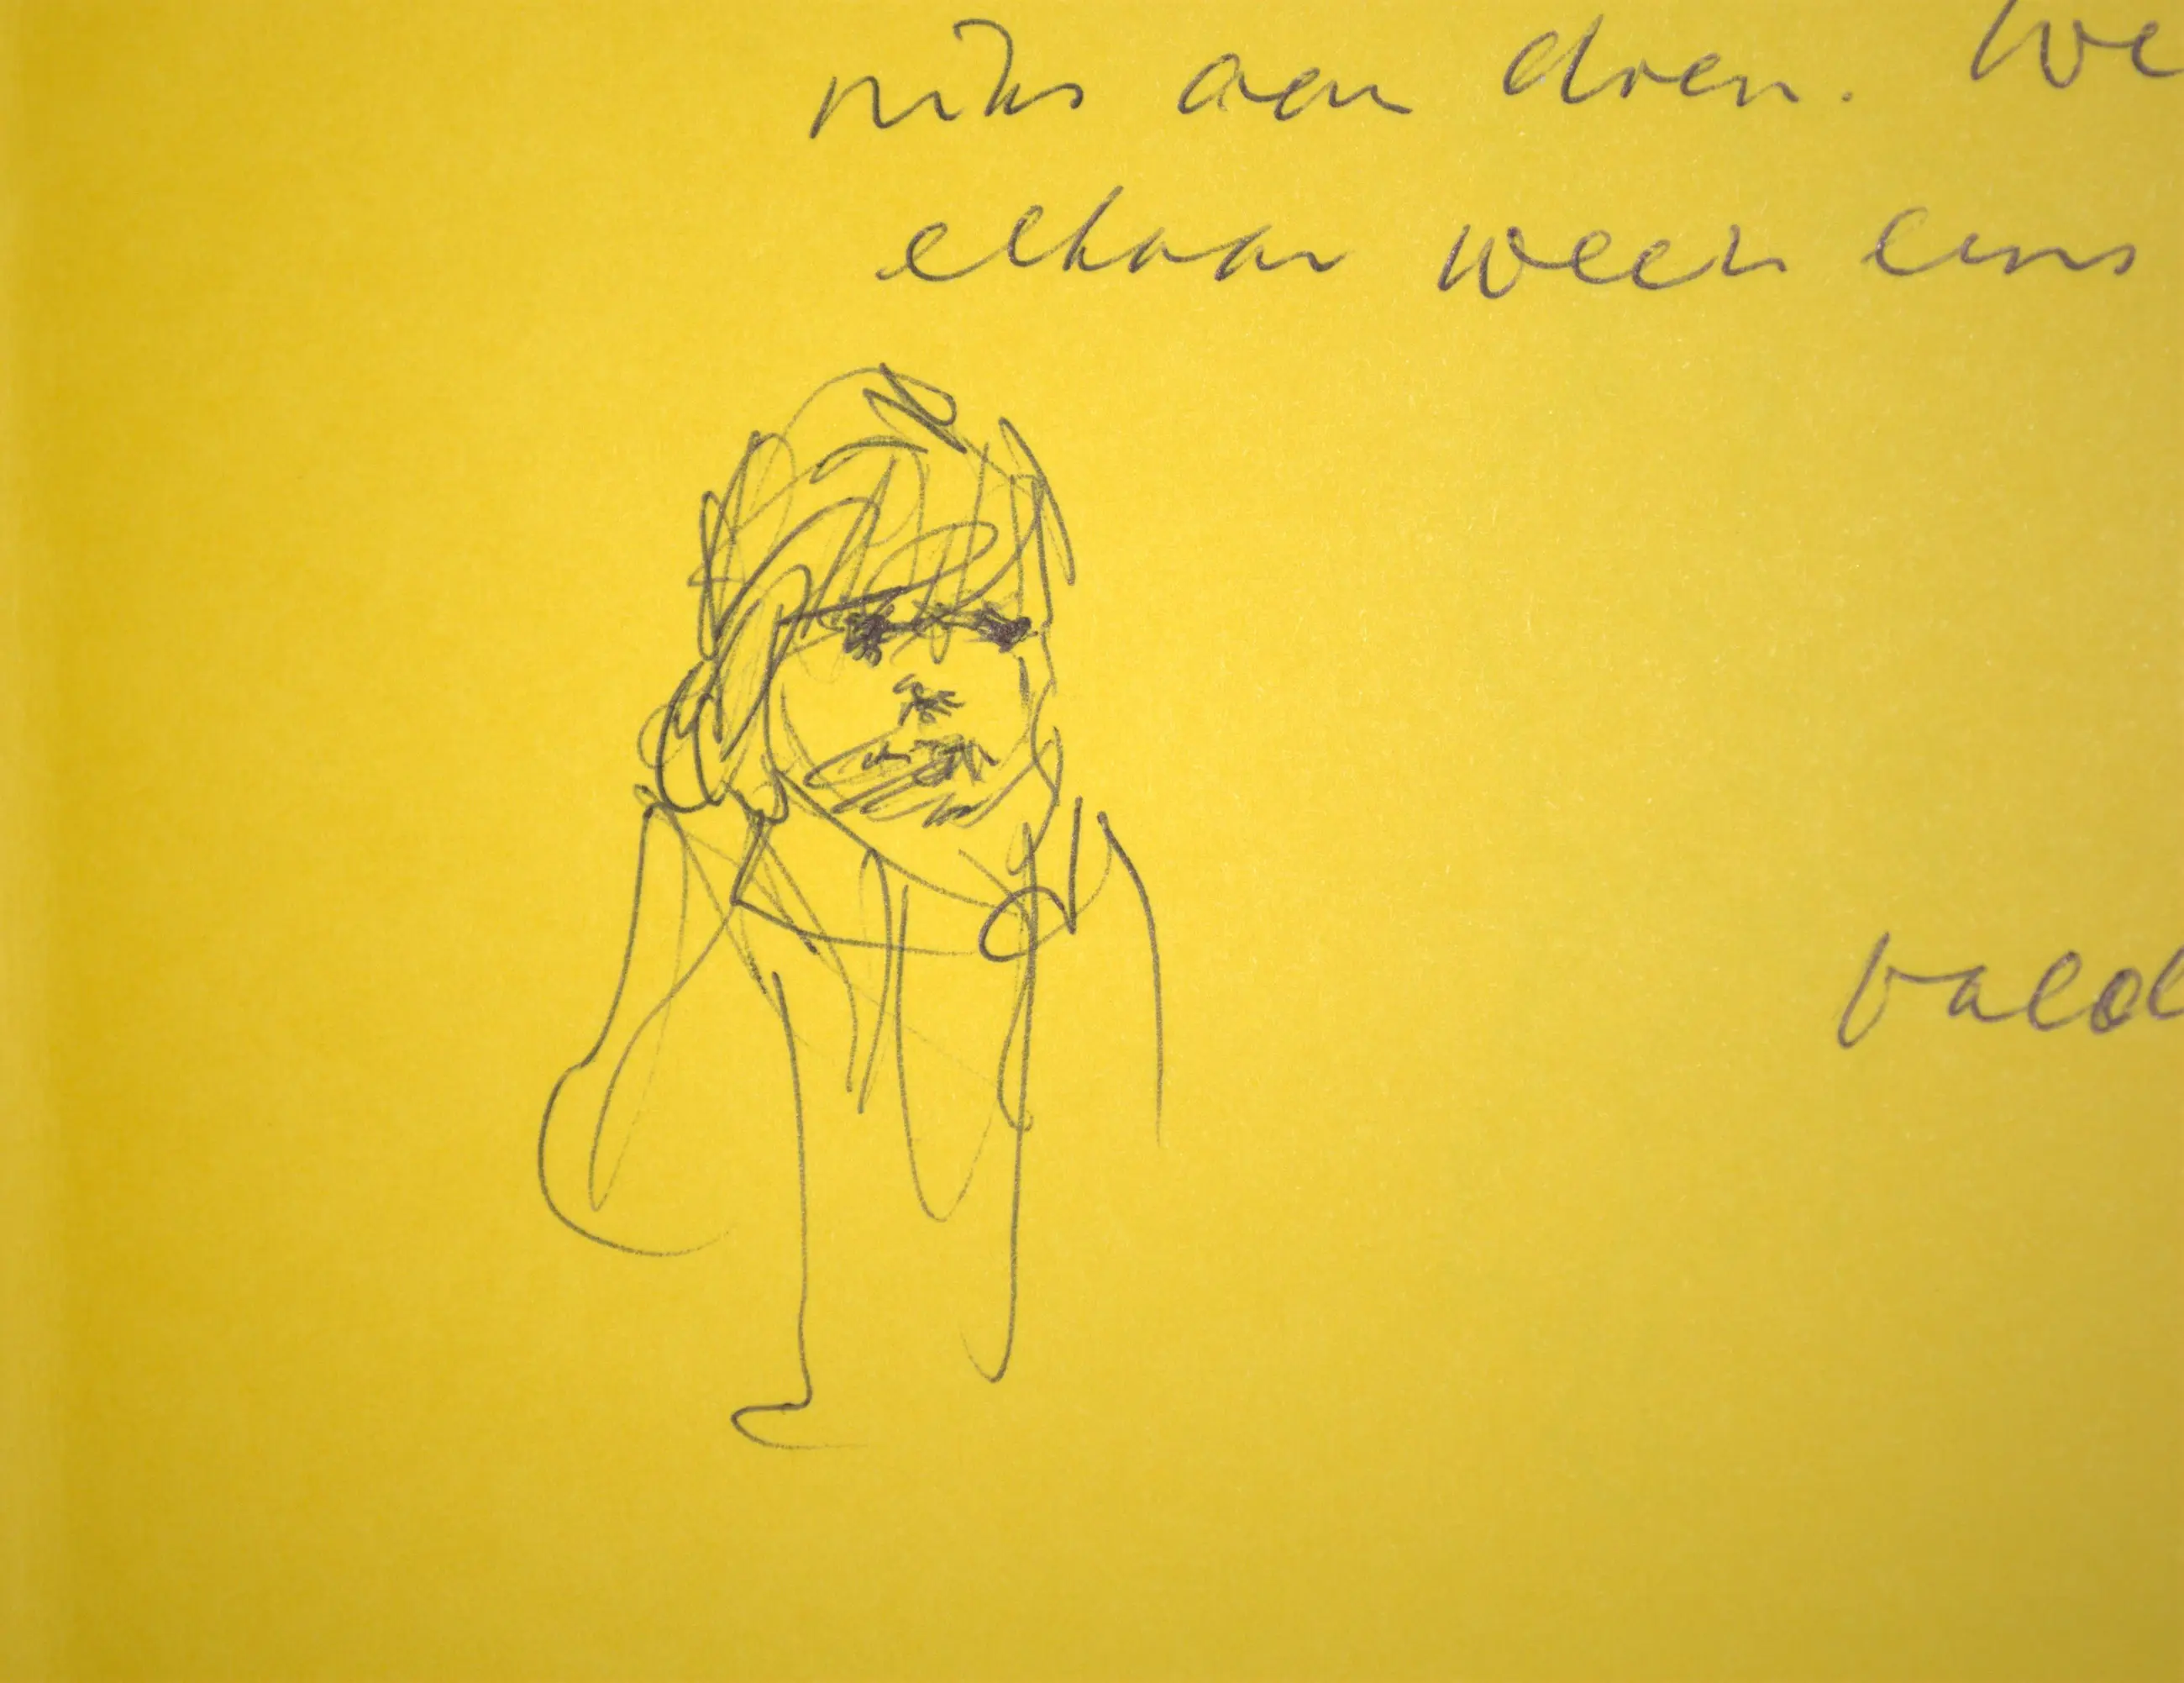 niks aan doen. We
elkaar weer eens